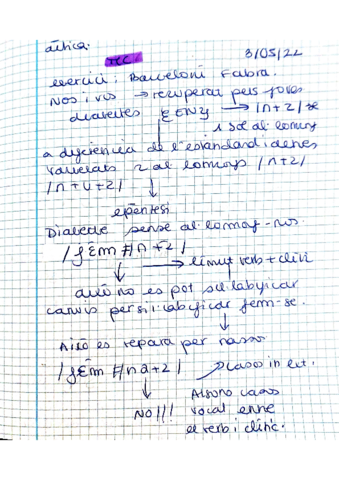 àtica.
TCC 3/05/22
exercici: Barceloní Fabra.
Nos i vos → recuperat pels joves
dialectes ENZ → /n+z/ se
1 sol al·lomorf
a diferència de l'estàndard i altres
varietats 2 al·lomorfs /n+z/
/n+u+z/
↓
epèntesi
Dialecte sense al·lomorf -nos.
/fém #n+z/
↓ → límit verb + clític
això no es pot sil·labificar
canvis per sil·labificar fem-se.
↓
Això es repara per nasal
/fém #nə+z/ → casos in ext.
↓
NO!!! Alguns casos
vocal entre
el verb i clític.